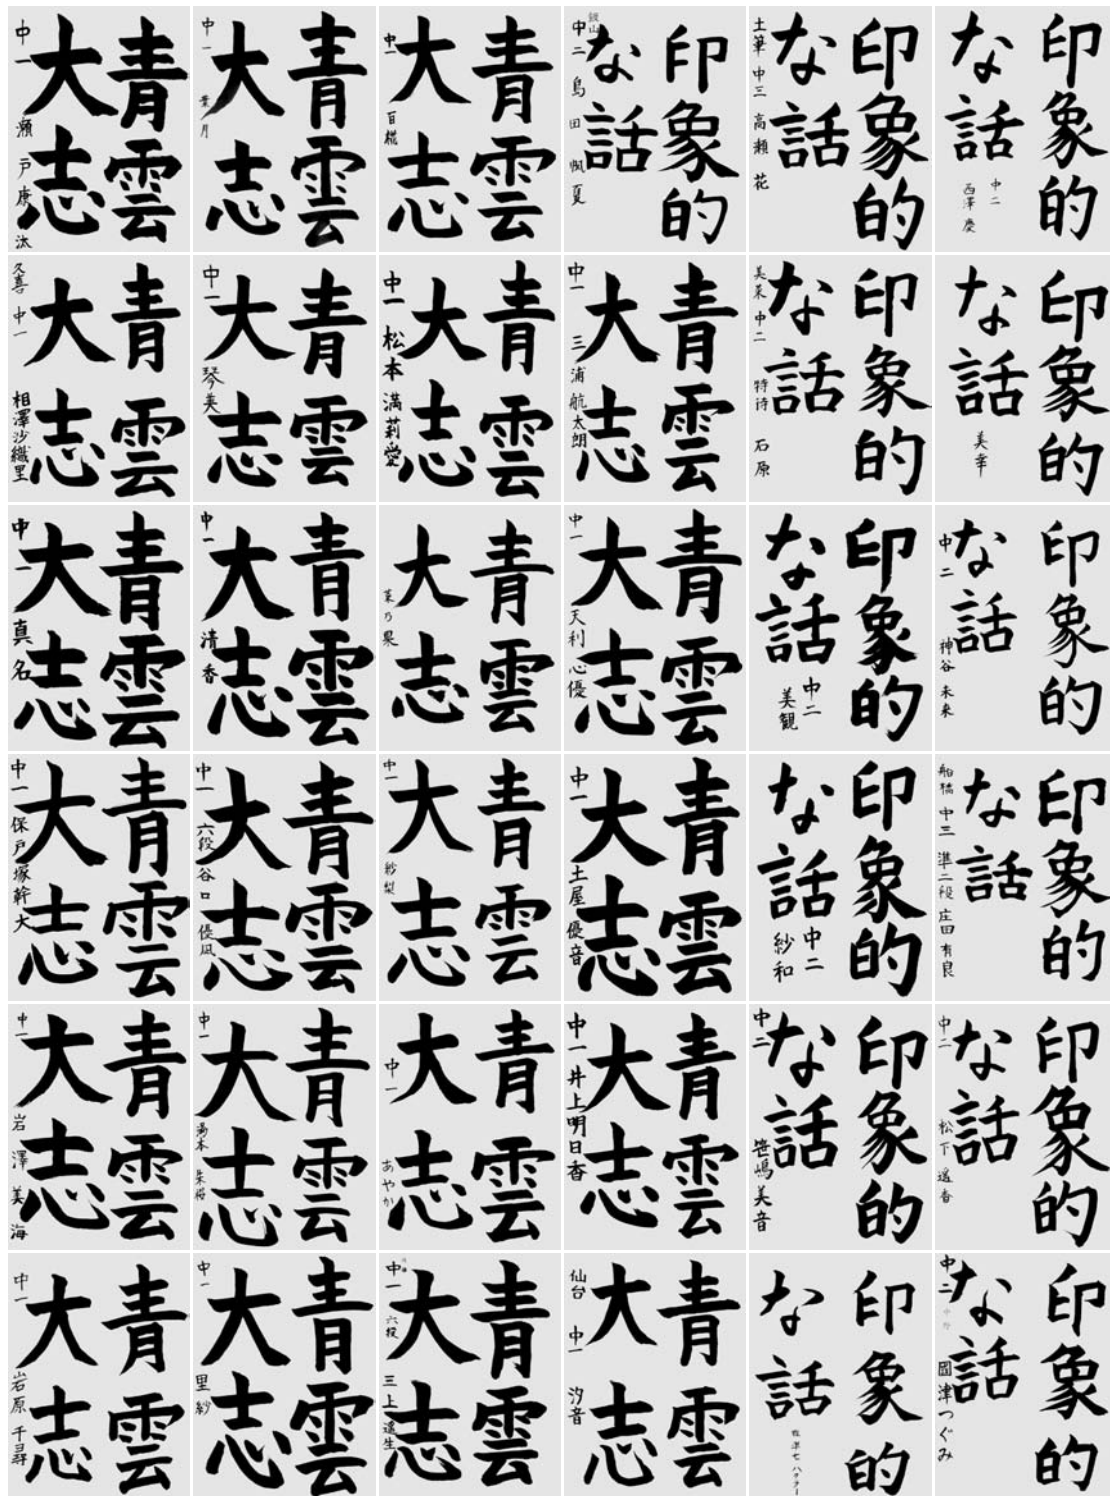 青雲
大志
中一 瀬戸康汰
青雲
大志
中一 葉月
青雲
大志
中一 百椛
印象的
な話
中二 島田 夏
印象的
な話
土筆 中三 高瀬 花
印象的
な話
中二
西澤 慶
青雲
大志
久喜 中一 相澤沙織里
青雲
大志
中一 琴美
青雲
大志
中一 松本 満莉愛
青雲
大志
中一 三浦航太朗
印象的
な話
美菜 中二 特待 石原
印象的
な話
美幸
青雲
大志
中一 真名
青雲
大志
中一 清香
青雲
大志
菜乃果
青雲
大志
中一 天利心優
印象的
な話
中二
美観
印象的
な話
中二 神谷未来
青雲
大志
中一 保戸塚幹大
青雲
大志
中一 六段 谷口 優凪
青雲
大志
中一 紗梨
青雲
大志
中一 土屋優音
印象的
な話
中二
紗和
印象的
な話
船橋 中三 準二段 庄田有良
青雲
大志
中一 岩澤美海
青雲
大志
中一 湯本
青雲
大志
中一 あやか
青雲
大志
中一 井上明日香
印象的
な話
中二 笹嶋美音
印象的
な話
中二 松下遥香
青雲
大志
中一 岩原千尋
青雲
大志
中一 里紗
青雲
大志
中一 六段 三上遥生
青雲
大志
仙台 中一 汐音
印象的
な話
印象的
な話
中二 國津つぐみ